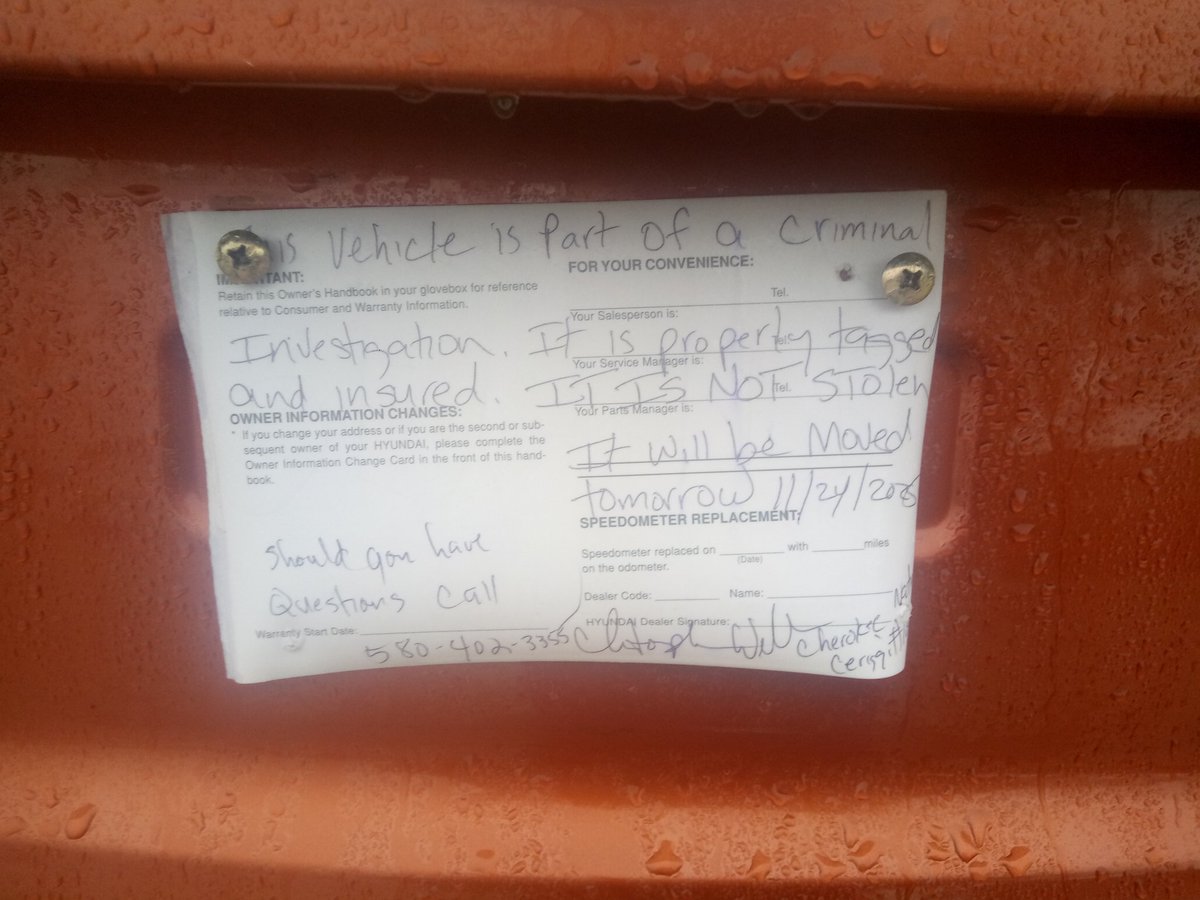 is Vehicle is Part of a Criminal
IMPORTANT:
Retain this Owner's Handbook in your glovebox for reference
relative to Consumer and Warranty Information.
FOR YOUR CONVENIENCE:
Tel.
Your Salesperson is:
Investigation. It is properly tagged
Tel.
Your Service Manager is:
and insured. IT IS NOT STOlen
Tel.
Your Parts Manager is:
OWNER INFORMATION CHANGES:
* If you change your address or if you are the second or sub-
sequent owner of your HYUNDAI, please complete the
Owner Information Change Card in the front of this hand-
book.
It will be Moved
tomorrow 11/24/2025
SPEEDOMETER REPLACEMENT:
Speedometer replaced on with miles
(Date)
on the odometer.
Dealer Code: Name:
HYUNDAI Dealer Signature:
should you have
Questions call
Warranty Start Date:
580-402-3355